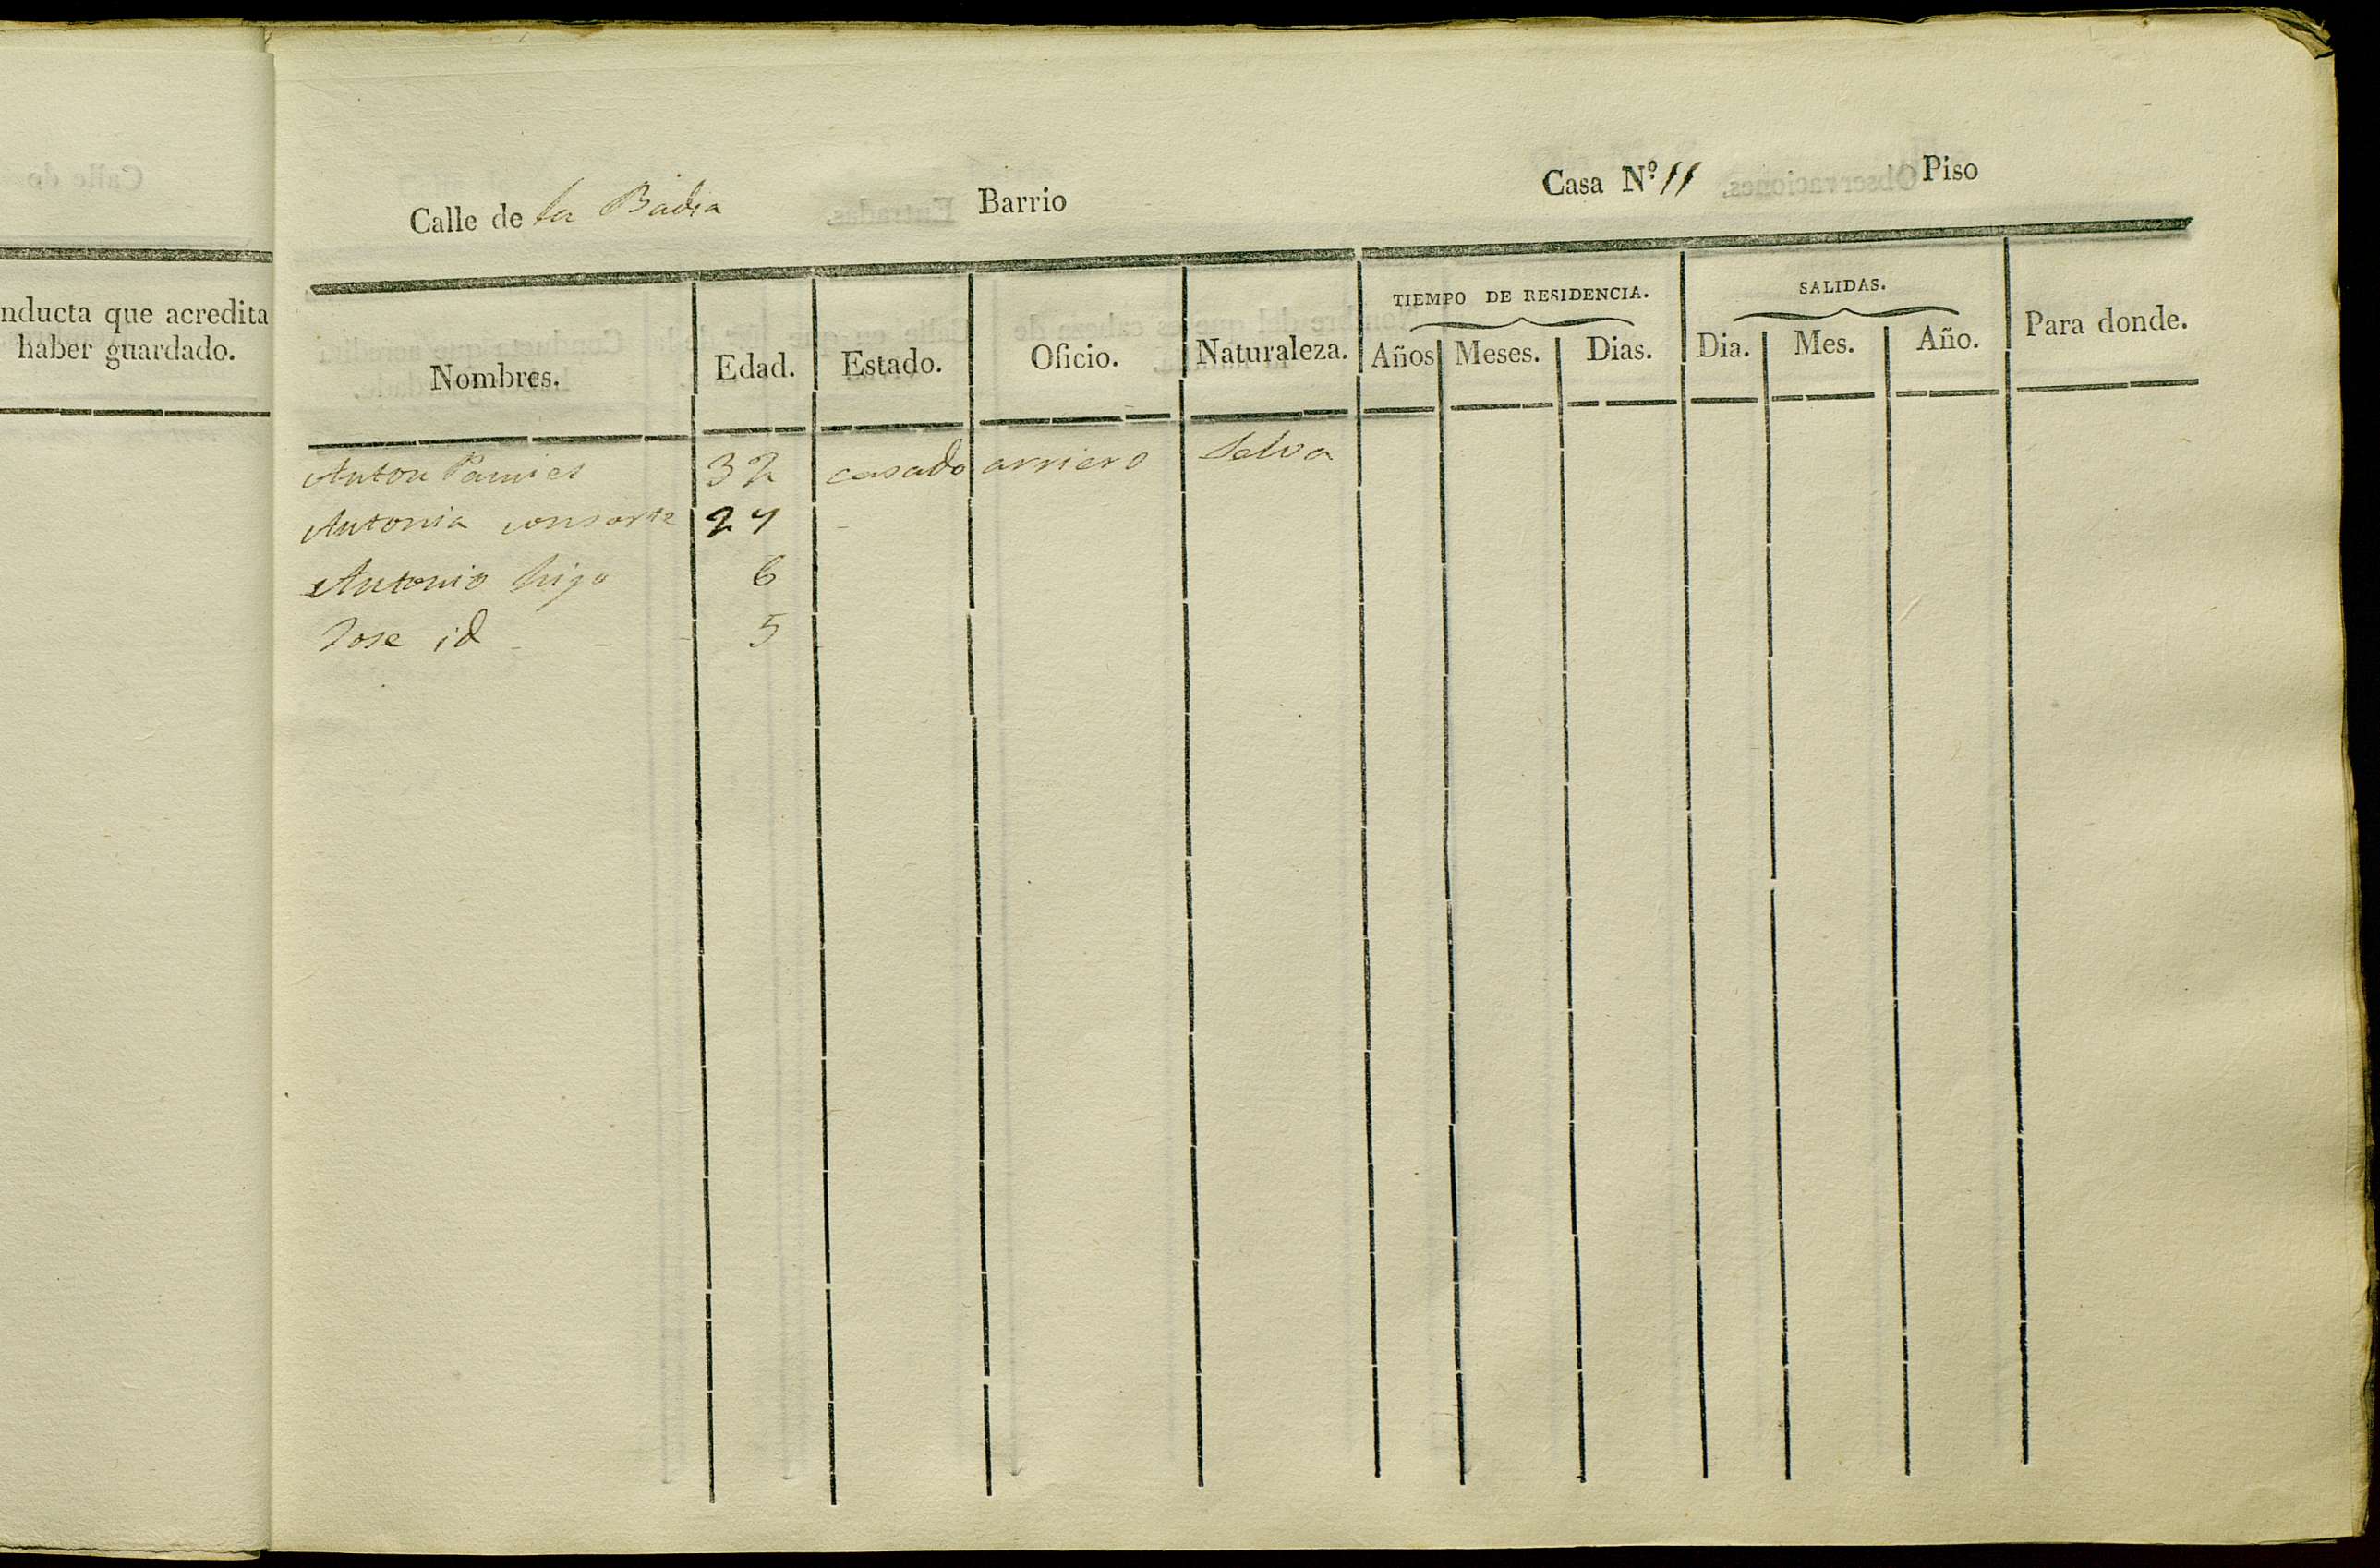 nducta que acredita
haber guardado.
Calle de la Badia Barrio Casa N.º 11 Piso
Nombres. Edad. Estado. Oficio. Naturaleza. TIEMPO DE RESIDENCIA. SALIDAS. Para donde.
Años Meses. Dias. Dia. Mes. Año.
Anton Pamies 32 casado arriero Selva
Antonia consorte 27 -
Antonio hijo 6
Jose id - - - 5